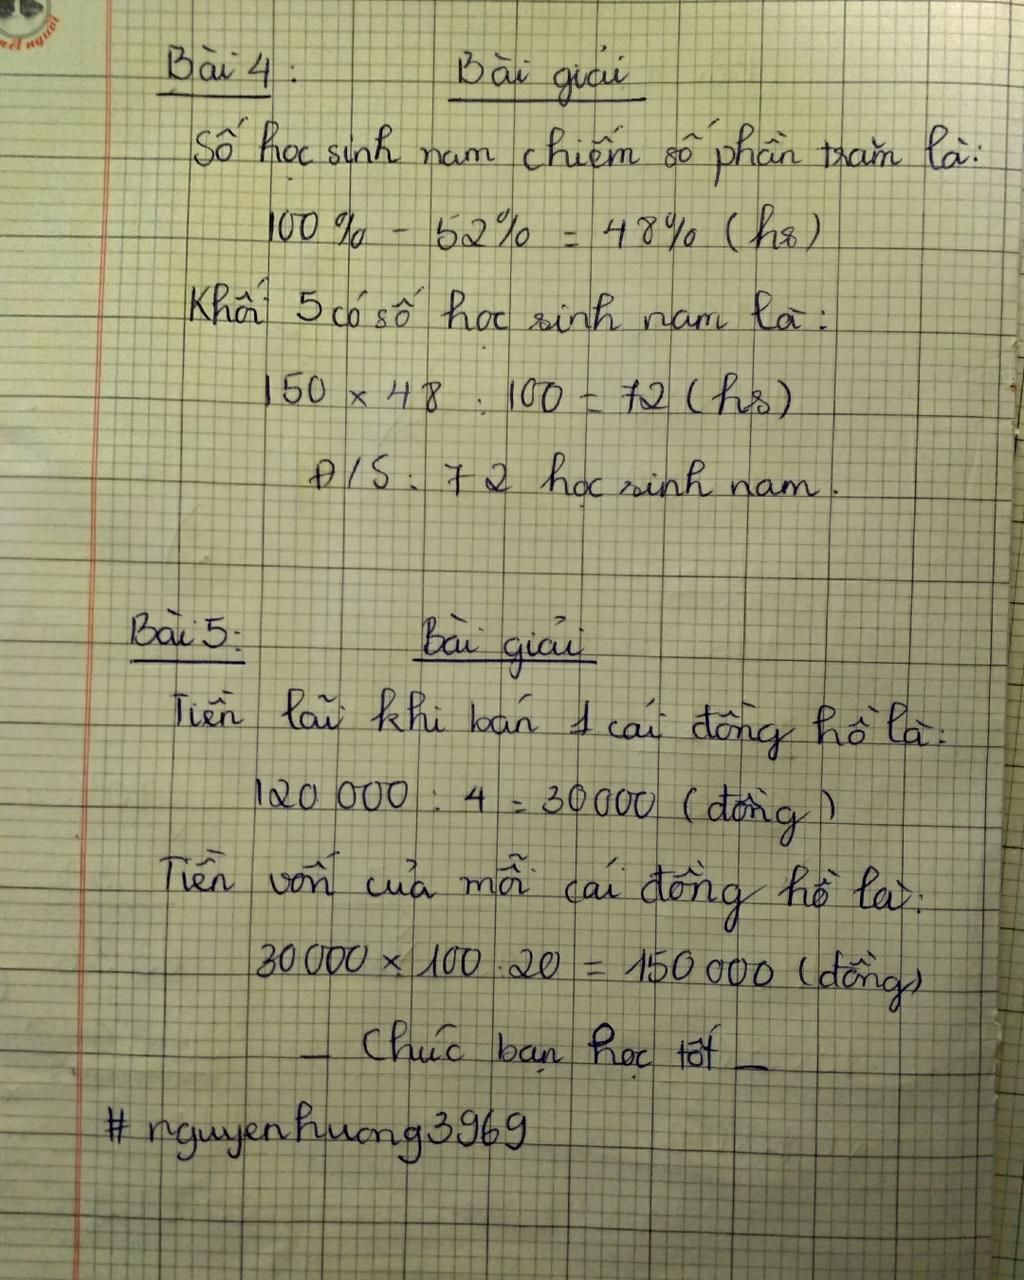 nết người
Bài 4: Bài giải
Số học sinh nam chiếm số phần trăm là:
100% - 52% = 48% (hs)
Khối 5 có số học sinh nam là:
150 x 48 : 100 = 72 (hs)
Đ/S: 72 học sinh nam.
Bài 5: Bài giải
Tiền lãi khi bán 1 cái đồng hồ là:
120 000 : 4 = 30 000 (đồng)
Tiền vốn của mỗi cái đồng hồ là:
30 000 x 100 : 20 = 150 000 (đồng)
_ Chúc bạn học tốt _
# nguyenhuong3969